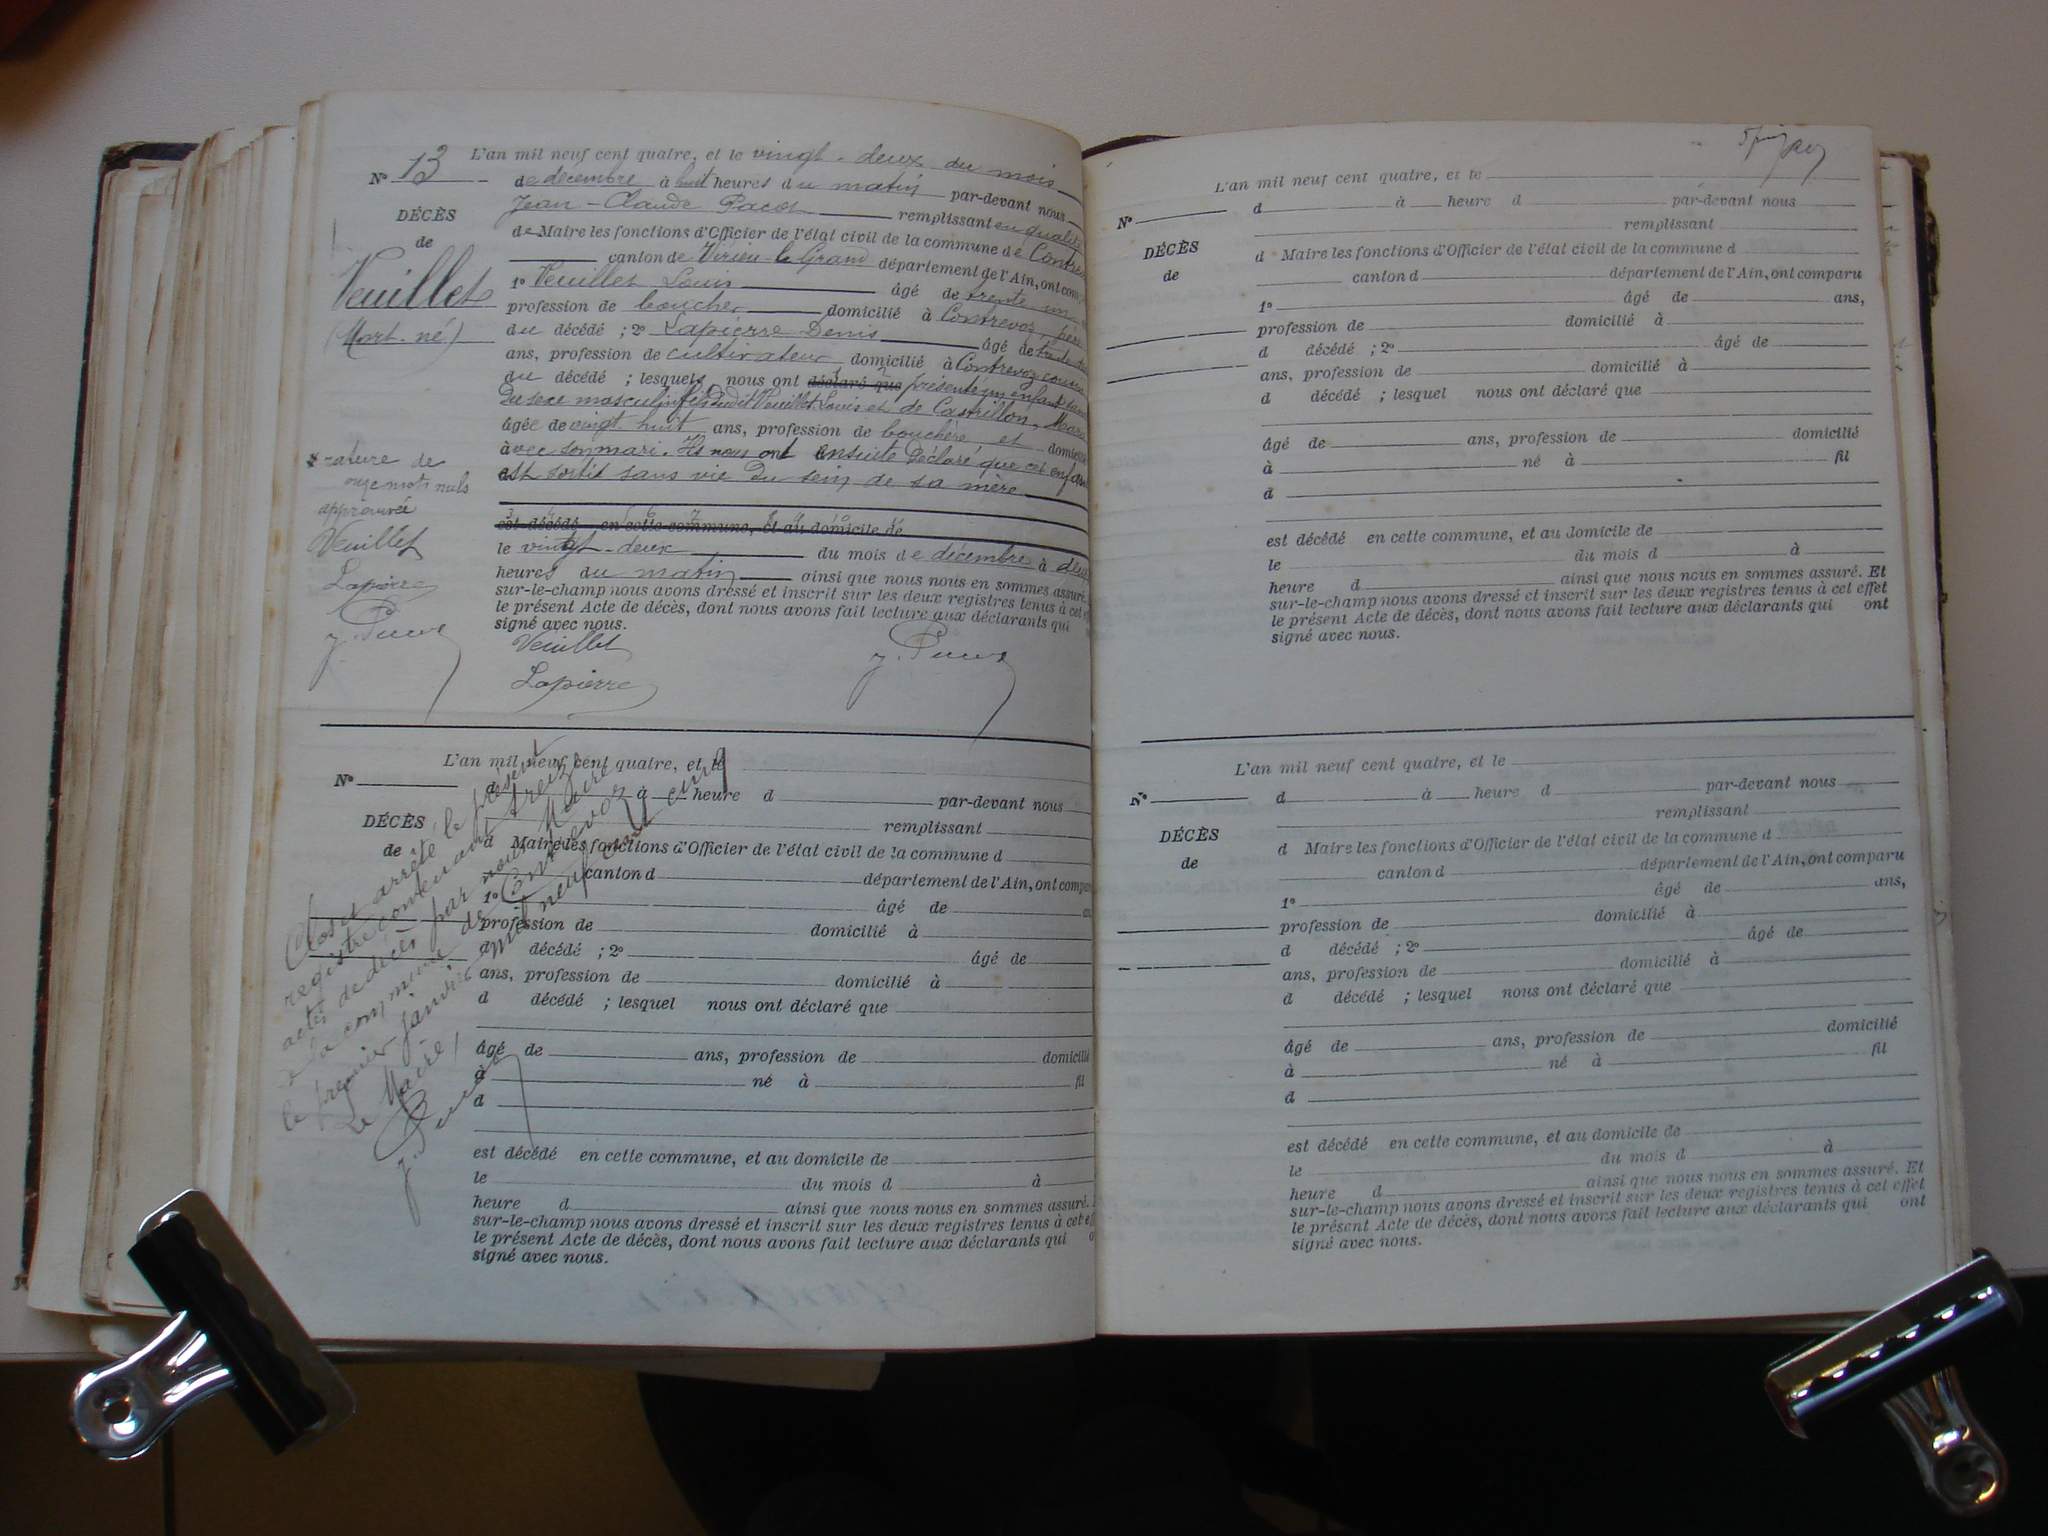 L'an mil neuf cent quatre, et le vingt-deux du mois
N° 13
de décembre à huit heures du matin par-devant nous
Jean-Claude remplissant en qualité
de Maire les fonctions d'Officier de l'état civil de la commune de
canton de Virieu-le-Grand département de l'Ain, ont
DÉCÈS
de
Veuillet
(Mort-né)
1° Veuillet Louis âgé de trente un
profession de boucher domicilié à Contrevoz, père
du décédé ; 2° Lapierre Denis âgé de
ans, profession de cultivateur domicilié à Contrevoz
du décédé ; lesquels nous ont déclaré que présenté un enfant
du sexe masculin fils dudit Veuillet Louis et de Castillon,
âgée de vingt huit ans, profession de bouchère et
avec son mari. Ils nous ont ensuite déclaré que cet
est sortit sans vie du sein de sa mère
est décédé en cette commune, et au domicile de
le vingt-deux du mois de décembre à
heures du matin ainsi que nous nous en sommes assuré.
sur-le-champ nous avons dressé et inscrit sur les deux registres tenus à cet
le présent Acte de décès, dont nous avons fait lecture aux déclarants qui
signé avec nous.
Veuillet
Lapierre
rature de
onze mots nuls
approuvée
Veuillet
Lapierre
L'an mil neuf cent quatre, et le
N°
d à heure d par-devant nous
remplissant
DÉCÈS
de
d Maire les fonctions d'Officier de l'état civil de la commune d
canton d département de l'Ain, ont
1° âgé de
profession de domicilié à
d décédé ; 2° âgé de
ans, profession de domicilié à
d décédé ; lesquel nous ont déclaré que
âgé de ans, profession de domicilié
à né à fil
d
est décédé en cette commune, et au domicile de
le du mois d à
heure d ainsi que nous nous en sommes assuré.
sur-le-champ nous avons dressé et inscrit sur les deux registres tenus à cet
le présent Acte de décès, dont nous avons fait lecture aux déclarants qui
signé avec nous.
Clos et arrêté le présent
registre contenant treize
actes de décès par nous Maire
de la commune de Contrevoz
le premier janvier mil neuf cent cinq
Le Maire,
L'an mil neuf cent quatre, et le
N°
d à heure d par-devant nous
remplissant
DÉCÈS
de
d Maire les fonctions d'Officier de l'état civil de la commune d
canton d département de l'Ain, ont comparu
1° âgé de ans,
profession de domicilié à
d décédé ; 2° âgé de
ans, profession de domicilié à
d décédé ; lesquel nous ont déclaré que
âgé de ans, profession de domicilié
à né à fil
d
est décédé en cette commune, et au domicile de
le du mois d à
heure d ainsi que nous nous en sommes assuré. Et
sur-le-champ nous avons dressé et inscrit sur les deux registres tenus à cet effet
le présent Acte de décès, dont nous avons fait lecture aux déclarants qui ont
signé avec nous.
L'an mil neuf cent quatre, et le
N°
d à heure d par-devant nous
remplissant
DÉCÈS
de
d Maire les fonctions d'Officier de l'état civil de la commune d
canton d département de l'Ain, ont comparu
1° âgé de ans,
profession de domicilié à
d décédé ; 2° âgé de
ans, profession de domicilié à
d décédé ; lesquel nous ont déclaré que
âgé de ans, profession de domicilié
à né à fil
d
est décédé en cette commune, et au domicile de
le du mois d à
heure d ainsi que nous nous en sommes assuré. Et
sur-le-champ nous avons dressé et inscrit sur les deux registres tenus à cet effet
le présent Acte de décès, dont nous avons fait lecture aux déclarants qui ont
signé avec nous.